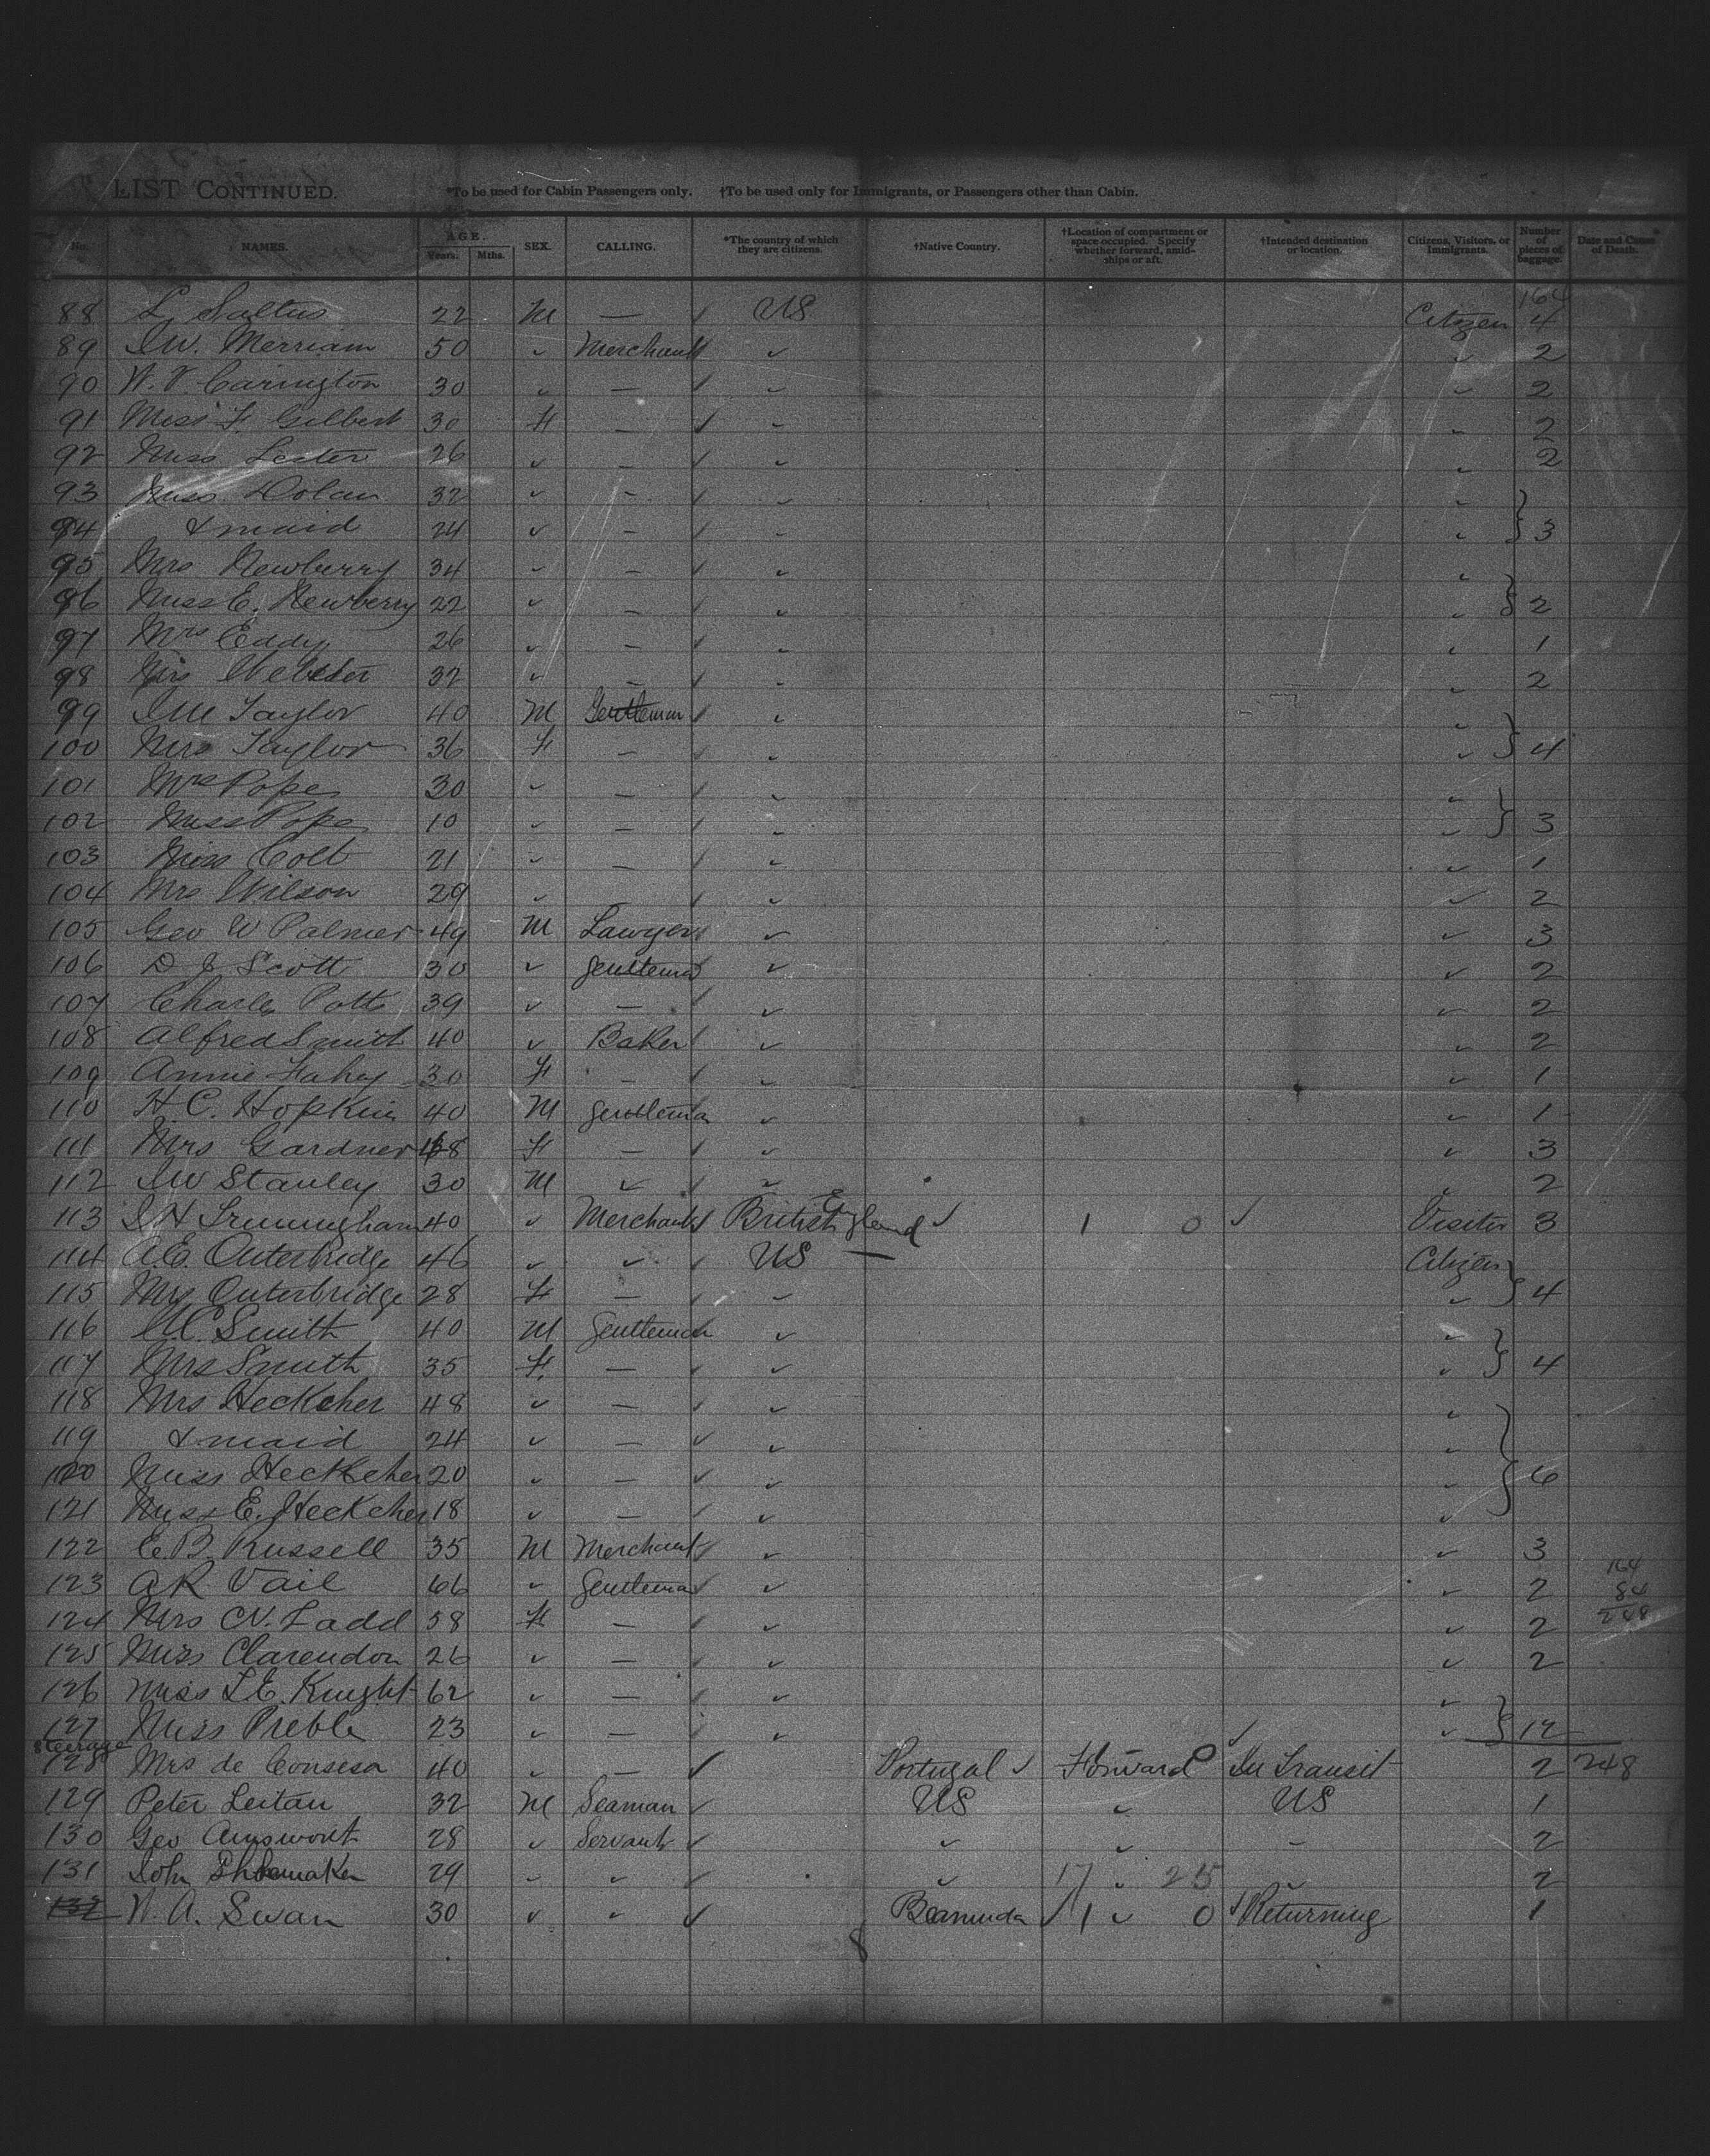 LIST CONTINUED. *To be used for Cabin Passengers only. †To be used only for Immigrants, or Passengers other than Cabin.
No. NAMES. AGE. Years. Mths. SEX. CALLING. *The country of which they are citizens. †Native Country. †Location of compartment or space occupied. Specify whether forward, amidships or aft. †Intended destination or location. Citizens, Visitors, or Immigrants. Number of pieces of baggage. Date and Cause of Death.
164
88 L. Saltus 22 M — ✓ US Citizen 4
89 J.W. Merriam 50 ✓ Merchant ✓ ✓ ✓ 2
90 W. V. Carington 30 ✓ — ✓ ✓ ✓ 2
91 Miss F. Gilbert 30 F — ✓ ✓ ✓ 2
92 Miss Lester 26 ✓ — ✓ ✓ ✓ 2
93 Miss Dolan 32 ✓ — ✓ ✓ ✓
94 & maid 24 ✓ — ✓ ✓ ✓ } 3
95 Mrs Newburry 34 ✓ — ✓ ✓ ✓
96 Miss E. Newberry 22 ✓ — ✓ ✓ ✓ } 2
97 Mrs Eddy 26 ✓ — ✓ ✓ ✓ 1
98 Mrs Webster 32 ✓ — ✓ ✓ ✓ 2
99 Taylor 40 M Gentleman ✓ ✓ ✓
100 Mrs Taylor 36 F — ✓ ✓ ✓ } 4
101 Mrs Pope 30 ✓ — ✓ ✓ ✓
102 Miss Pope 10 ✓ — ✓ ✓ ✓ } 3
103 Miss Colt 21 ✓ — ✓ ✓ ✓ 1
104 Mrs Wilson 29 ✓ — ✓ ✓ ✓ 2
105 Geo W Palmer 49 M Lawyer ✓ ✓ ✓ 3
106 D J Scott 30 ✓ gentleman ✓ ✓ 2
107 Charles Potts 39 ✓ — ✓ ✓ ✓ 2
108 Alfred Smith 40 ✓ Baker ✓ ✓ ✓ 2
109 Annie Fahey 30 F — ✓ ✓ ✓ 1
110 H C. Hopkins 40 M gentleman ✓ ✓ 1
111 Mrs Gardner 48 F — ✓ ✓ ✓ 3
112 JW Stanley 30 M ✓ ✓ ✓ ✓ 2
113 J H Trimmingham 40 ✓ Merchant ✓ British England ✓ 1 0 ✓ Visitor 3
114 A.E. Outerbridge 46 ✓ ✓ ✓ US Citizen
115 Mrs Outerbridge 28 F — ✓ ✓ ✓ } 4
116 Smith 40 M Gentleman ✓ ✓
117 Mrs Smith 35 F. — ✓ ✓ ✓ } 4
118 Mrs Heckcher 48 ✓ — ✓ ✓ ✓
119 & maid 24 ✓ — ✓ ✓ ✓
120 Miss Heckcher 20 ✓ — ✓ ✓ ✓ } 6
121 Miss E. Heckcher 18 ✓ — ✓ ✓ ✓
122 E. B. Russell 35 M Merchant ✓ ✓ ✓ 3
164
123 A R. Vail 66 ✓ Gentleman ✓ ✓ ✓ 2 84
124 Mrs C N. Ladd 58 F — ✓ ✓ ✓ 2 248
125 Miss Clarendon 26 ✓ — ✓ ✓ ✓ 2
126 Miss L E. Knight 62 ✓ — ✓ ✓ ✓
127 Miss Preble 23 ✓ — ✓ ✓ ✓ ✓ } 12
Steerage
128 Mrs de 40 ✓ — ✓ Portugal ✓ Forward In Transit 2 248
129 Peter Leitan 32 M Seaman ✓ US ✓ US 1
130 Geo 28 ✓ Servant ✓ ✓ ✓ — 2
131 John Shoemaker 29 ✓ ✓ ✓ ✓ 17 ✓ 25 ✓ 2
132 W. A. Swan 30 ✓ ✓ ✓ Bermuda ✓ 1 ✓ 0 ✓ Returning 1
8